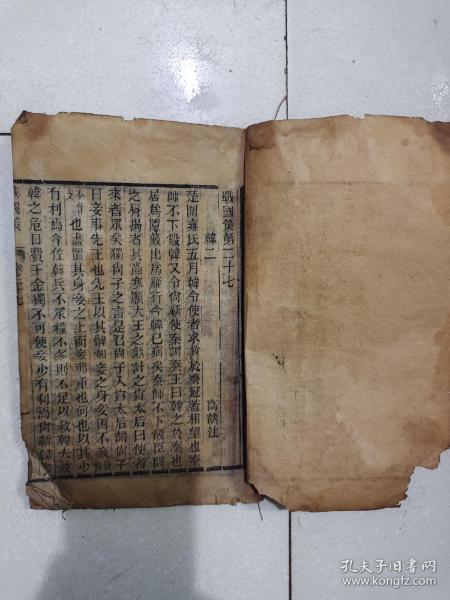 戰國策第二十七
韓二
高誘注
楚圍雍氏五月韓令使者求救於秦冠蓋相望也秦
師不下殽韓又令尚靳使秦謂秦王曰韓之於秦也
居爲隱蔽出爲鴈行今韓已病矣秦師不下殽臣聞
之脣揭者其齒寒願大王之熟計之宣太后曰使者
來者眾矣獨尚子之言是召尚子入宣太后謂尚子
曰妾事先王也先王以其髀加妾之身妾困不疲
也盡置其身妾之上而妾弗重也何也以其少
有利焉今佐韓兵不眾糧不多則不足以救韓夫救
韓之危日費千金獨不可使妾少有利焉尚靳歸
戰國策
孔夫子旧书网
www.kongfz.com